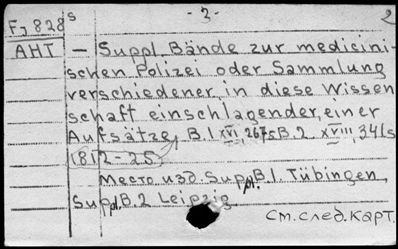 F7828 s - 3 - 2
АНТ — Suppl. Bände zur medicini-
schen Polizei oder Sammlung
verschiedener, in diese Wissen
schaft einschlagender, einer
Aufsätze, B. 1 XVI, 267 S B. 2. XVIII, 341 S
1812-25
Место изд. Suppl. B. 1. Tübingen,
Suppl. B. 2 Leipzig.
См. след. карт.